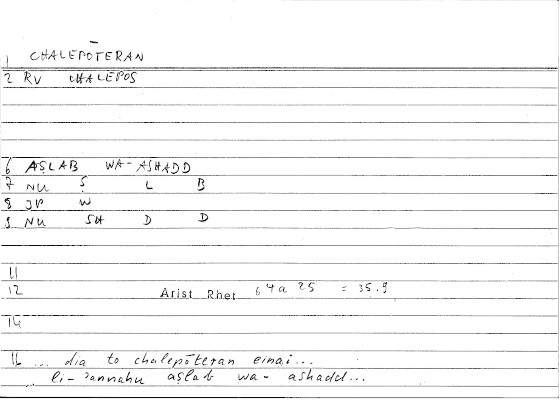 1 CHALEPŌTERAN
2 RV CHALEPOS
6 AṢLAB WA-ASHADD
7 NU Ṣ L B
8 JP W
9 NU SH D D
11
12 Arist Rhet 64a 25 = 35.9
14
16 ... dia to chalepōteran einai...
li-ʾannahu aṣlab wa- ashadd...